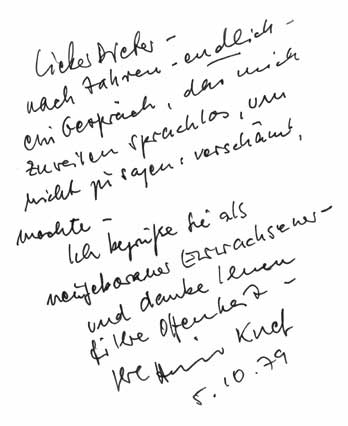 Lieber Dieter –
nach Jahren – endlich –
ein Gespräch, das mich
zuweilen sprachlos, um
nicht zu sagen: verschämt,
machte –
Ich begrüße Sie als
neugeborener Erwachsener –
und danke Ihnen
für Ihre Offenheit –
Ihre Knef
5.10.79